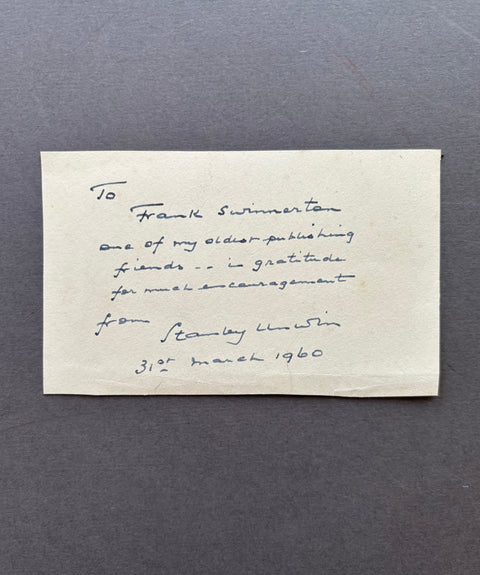 To
Frank Swinnerton
one of my oldest publishing
friends -- in gratitude
for much encouragement
from Stanley Unwin
31st March 1960